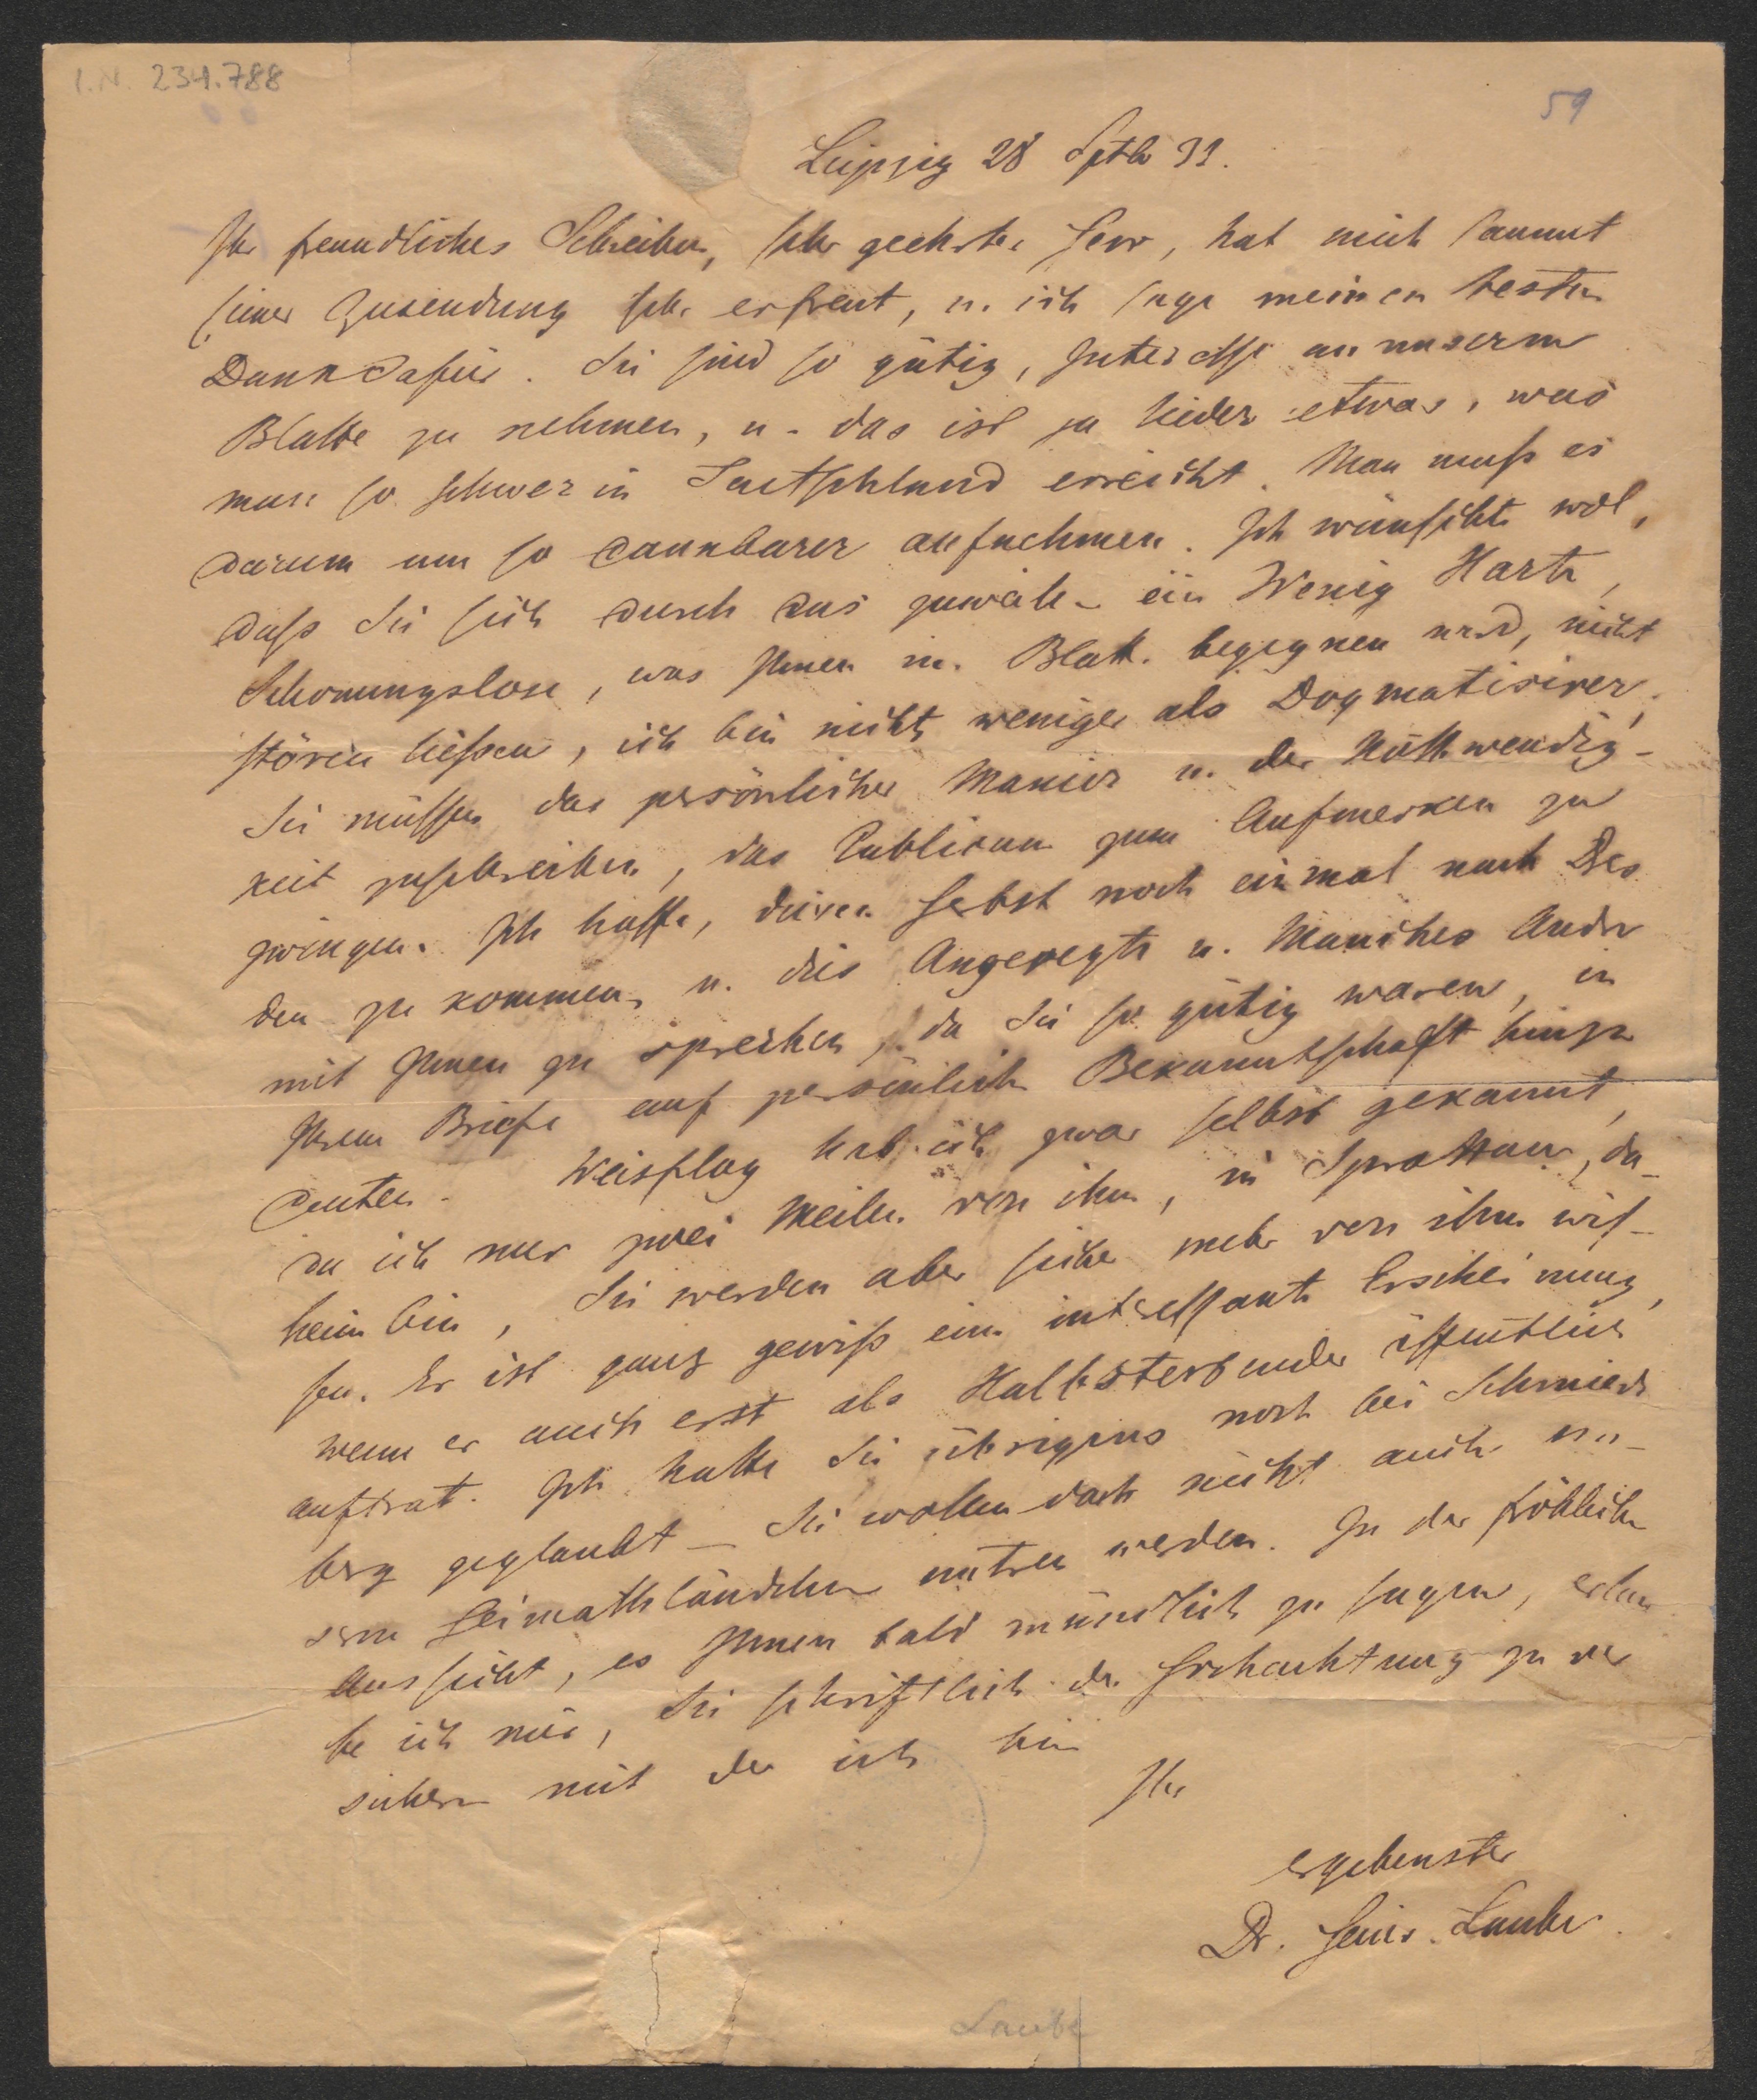 I.N. 234.788
59
Leipzig 28 Sptb 33.
Ihr freundliches Schreiben, sehr geehrter Herr, hat mich sammt
seiner Zusendung sehr erfreut, u. ich sage meinen besten
Dank dafür. Sie sind so gütig, Interesse an unserm
Blatte zu nehmen, u. das ist ja leider etwas, was
man so schwer in Deutschland erreicht. Man muß es
darum um so dankbarer aufnehmen. Ich wünschte wol,
daß Sie sich durch das zuweilen ein Wenig Harte,
Schonungslose, was Ihnen im Blatt. begegnen wird, nicht
stören ließen, ich bin nichts weniger als Dogmatisirer,
Sie müssen das persönlicher Manier u. der Nothwendig-
keit zuschreiben, das Publicum zum Aufmerken zu
zwingen. Ich hoffe, diesen Herbst noch einmal nach Dres
den zu kommen, u. dies Angeregte u. Manches Andre
mit Ihnen zu sprechen, da Sie so gütig waren, in
Ihrem Briefe auf persönliche Bekanntschaft hinzu
deuten. Weisflog hab ich zwar selbst gekannt,
da ich nur zwei Meilen von ihm, in Sprottau, da-
heim bin, Sie werden aber sicher mehr von ihm wis-
sen. Er ist ganz gewiß eine interessante Erscheinung,
wenn er auch erst als Halbsterbender öffentlich
auftrat. Ich hatte Sie übrigens noch bei Schmiede
berg geglaubt – Sie wollen doch nicht auch un-
serm Heimathländchen untreu werden. In der fröhlichen
Aussicht, es Ihnen bald mündlich zu sagen, erlau
be ich mir, Sie schriftlich der Hochachtung zu ver
sichern mit der ich bin
Ihr
ergebenster
Dr. Heinr. Laube.
Laube